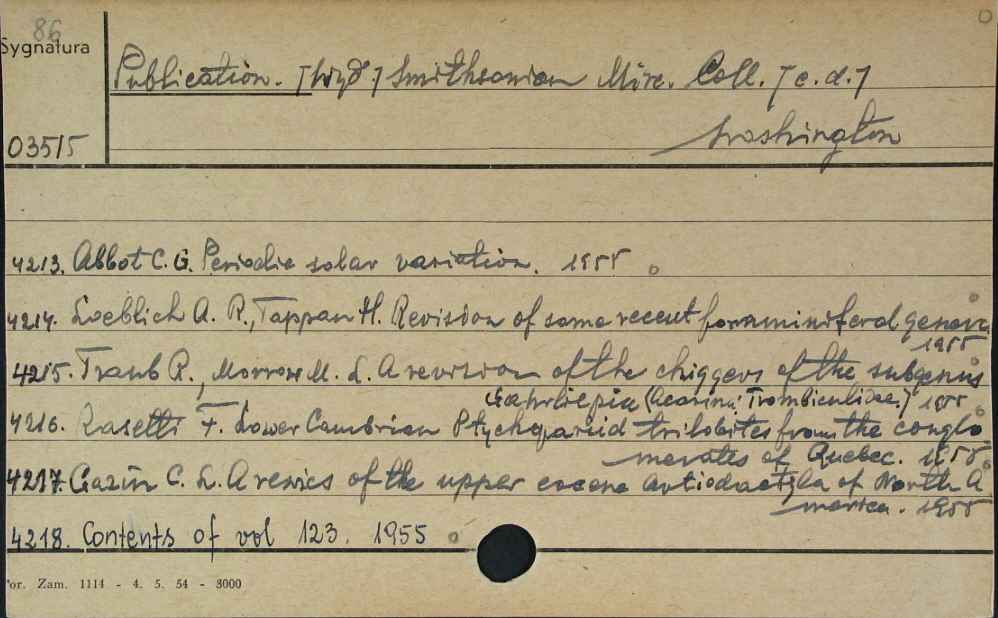 86
Sygnatura
Publication. [Wyd.] Smithsonian Misc. Coll. [c.d.]
Washington
03515
4213. Abbot C. G. Periodic solar variation. 1955
4214. Loeblich A. R., Tappan H. Revision of some recent foraminiferal genera.
1955
4215. Traub R., Morrow M. L. A revision of the chiggers of the subgenus
Gahrliepia (Acarina: Trombiculidae.) 1955
4216. Rasetti F. Lower Cambrian Ptychopariid trilobites from the conglo
merates of Quebec. 1955
4217. Gazin C. L. A review of the upper eocene Artiodactyla of North A
merica. 1955
4218. Contents of vol 123. 1955
or. Zam. 1114 - 4. 5. 54 - 3000